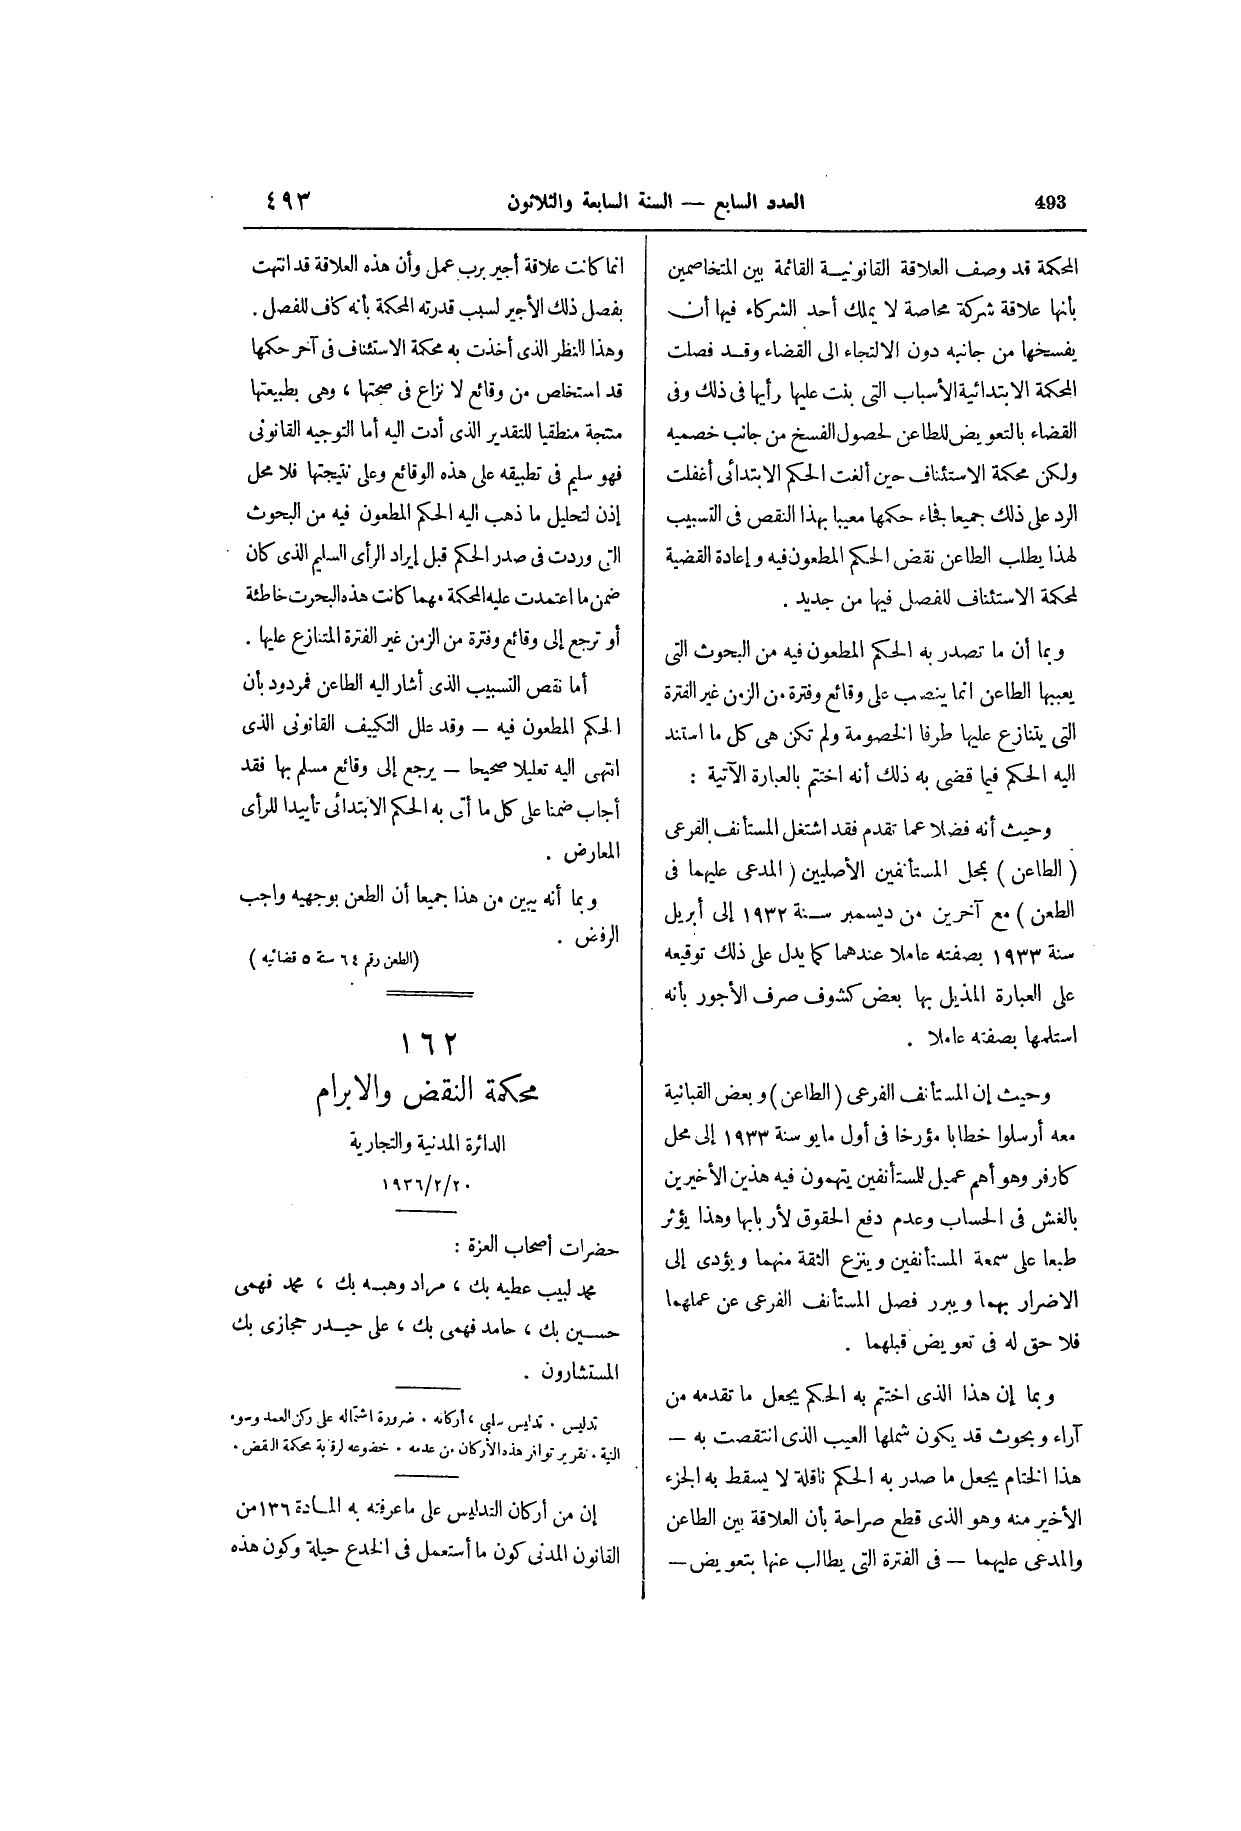 493
العدد السابع — السنة السابعة والثلاثون
٤٩٣
المحكمة قد وصف العلاقة القانونية القائمة بين المتخاصمين
بأنها علاقة شركة محاصة لا يملك أحد الشركاء فيها أن
يفسخها من جانبه دون الالتجاء الى القضاء وقد فصلت
المحكمة الابتدائية الأسباب التى بنت عليها رأيها فى ذلك وفى
القضاء بالتعويض للطاعن لحصول الفسخ من جانب خصميه
ولكن محكمة الاستئناف حين ألغت الحكم الابتدائى أغفلت
الرد على ذلك جميعا فجاء حكمها معيبا بهذا النقص فى التسبيب
لهذا يطلب الطاعن نقض الحكم المطعون فيه وإعادة القضية
لمحكمة الاستئناف للفصل فيها من جديد .
وبما أن ما تصدر به الحكم المطعون فيه من البحوث التى
يعيبها الطاعن انما ينصب على وقائع وفترة من الزمن غير الفترة
التى يتنازع عليها طرفا الخصومة ولم تكن هى كل ما استند
اليه الحكم فيما قضى به ذلك أنه اختتم بالعبارة الآتية :
وحيث أنه فضلا عما تقدم فقد اشتغل المستأنف الفرعى
( الطاعن ) بمحل المستأنفين الأصليين ( المدعى عليهما فى
الطعن ) مع آخرين من ديسمبر سنة ١٩٣٢ إلى أبريل
سنة ١٩٣٣ بصفته عاملا عندهما كما يدل على ذلك توقيعه
على العبارة المذيل بها بعض كشوف صرف الأجور بأنه
استلمها بصفته عاملا .
وحيث إن المستأنف الفرعى ( الطاعن ) وبعض القبانية
معه أرسلوا خطابا مؤرخا فى أول مايو سنة ١٩٣٣ إلى محل
كارفر وهو أهم عميل للمستأنفين يتهمون فيه هذين الأخيرين
بالغش فى الحساب وعدم دفع الحقوق لأربابها وهذا يؤثر
طبعا على سمعة المستأنفين وينزع الثقة منهما ويؤدى إلى
الاضرار بهما ويبرر فصل المستأنف الفرعى عن عملهما
فلا حق له فى تعويض قبلهما .
وبما إن هذا الذى اختتم به الحكم يجعل ما تقدمه من
آراء وبحوث قد يكون شملها العيب الذى انتقصت به —
هذا الختام يجعل ما صدر به الحكم نافلة لا يسقط به الجزء
الأخير منه وهو الذى قطع صراحة بأن العلاقة بين الطاعن
والمدعى عليهما — فى الفترة التى يطالب عنها بتعويض —
انما كانت علاقة أجير برب عمل وأن هذه العلاقة قد انتهت
بفصل ذلك الأجير لسبب قدرته المحكمة بأنه كاف للفصل .
وهذا النظر الذى أخذت به محكمة الاستئناف فى آخر حكمها
قد استخلص من وقائع لا نزاع فى صحتها ، وهى بطبيعتها
منتجة منطقيا للتقدير الذى أدت اليه أما التوجيه القانونى
فهو سليم فى تطبيقه على هذه الوقائع وعلى نتيجتها فلا محل
إذن لتحليل ما ذهب اليه الحكم المطعون فيه من البحوث
التى وردت فى صدر الحكم قبل إيراد الرأى السليم الذى كان
ضمن ما اعتمدت عليه المحكمة مهما كانت هذه البحوث خاطئة
أو ترجع إلى وقائع وفترة من الزمن غير الفترة المتنازع عليها .
أما نقص التسبيب الذى أشار اليه الطاعن فمردود بأن
الحكم المطعون فيه — وقد علل التكييف القانونى الذى
انتهى اليه تعليلا صحيحا — يرجع إلى وقائع مسلم بها فقد
أجاب ضمنا على كل ما أتى به الحكم الابتدائى تأييدا للرأى
المعارض .
وبما أنه يبين من هذا جميعا أن الطعن بوجهيه واجب
الرفض .
(الطعن رقم ٦٤ سنة ٥ قضائيه )
١٦٢
محكمة النقض والابرام
الدائرة المدنية والتجارية
١٩٣٦/٢/٢٠
حضرات أصحاب العزة :
محمد لبيب عطيه بك ، مراد وهبه بك ، محمد فهمى
حسين بك ، حامد فهمى بك ، على حيدر حجازى بك
المستشارون .
تدليس . تدليس سلبى ، أركانه . ضرورة اشتماله على ركن العمد وسوء
النية . تقرير توافر هذه الأركان من عدمه . خضوعه لرقابة محكمة النقض .
إن من أركان التدليس على ما عرفته به المادة ١٣٦ من
القانون المدنى كون ما أستعمل فى الخدع حيلة وكون هذه